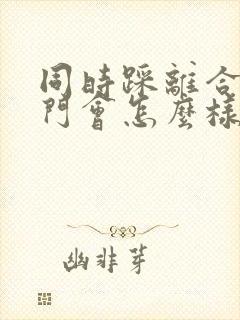 同時踩離合
門會怎麼樣
幽非芽